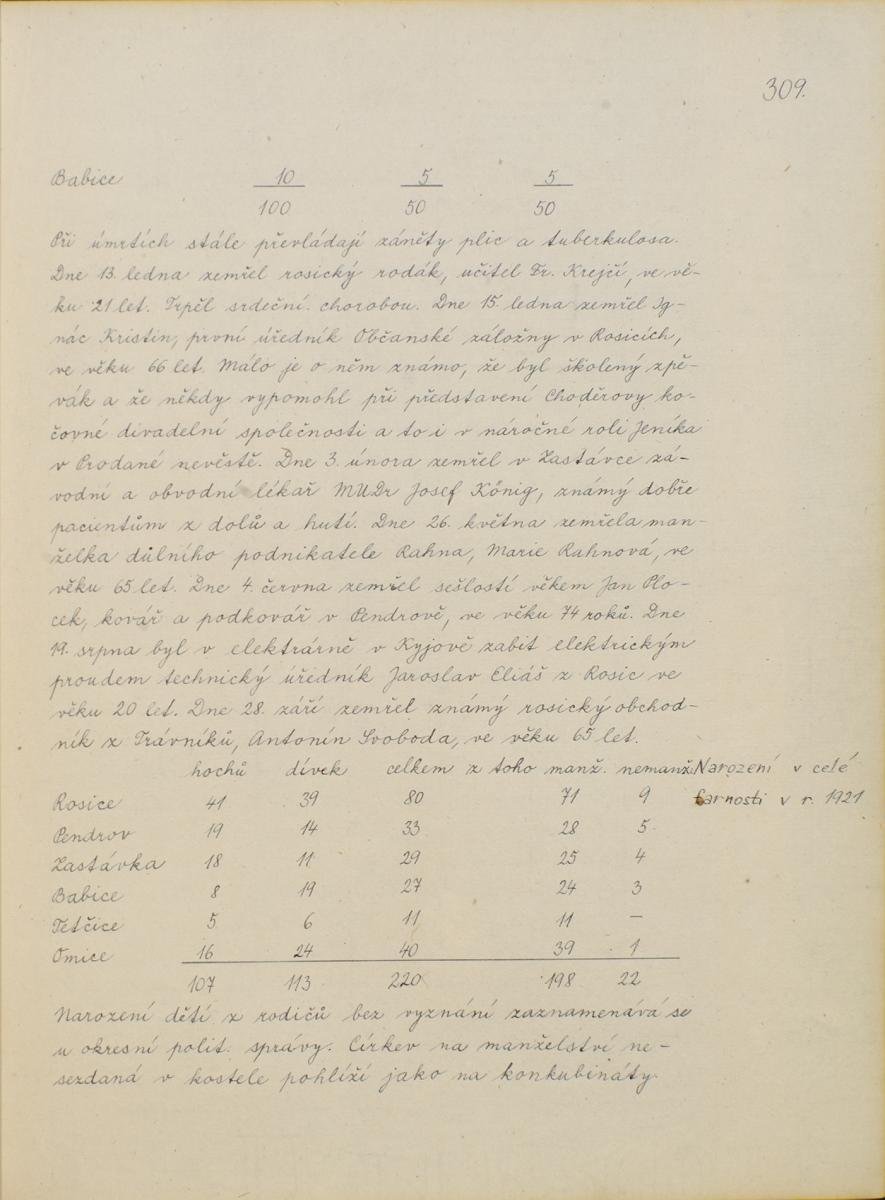 309.
Babice 10 5 5
100 50 50
Při úmrtích stále převládají záněty plic a tuberkulosa.
Dne 13. ledna zemřel rosický rodák, učitel Fr. Krejčí, ve vě-
ku 21 let. Trpěl srdeční chorobou. Dne 15. ledna zemřel Ig-
nác Kristin, první úředník Občanské záložny v Rosicích,
ve věku 66 let. Málo je o něm známo, že byl školený zpě-
vák a že někdy vypomohl při představení Choděrovy ko-
čovné divadelní společnosti a to i v náročné roli Jeníka
v Prodané nevěstě. Dne 3. února zemřel v Zastávce zá-
vodní a obvodní lékař MUDr Josef König, známý dobře
pacientům z dolů a hutí. Dne 26. května zemřela man-
želka důlního podnikatele Rahna, Marie Rahnová, ve
věku 65 let. Dne 4. června zemřel sešlostí věkem Jan Plo-
cek, kovář a podkovář v Pendrově, ve věku 74 roků. Dne
19. srpna byl v elektrárně v Kyjově zabit elektrickým
proudem technický úředník Jaroslav Eliáš z Rosic ve
věku 20 let. Dne 28. září zemřel známý rosický obchod-
ník z Trávníků, Antonín Svoboda, ve věku 65 let.
hochů dívek celkem z toho manž. nemanž. Narození v celé
Rosice 41 39 80 71 9 farnosti v r. 1921
Pendrov 19 14 33 28 5
Zastávka 18 11 29 25 4
Babice 8 19 27 24 3
Tetčice 5 6 11 11 –
Omice 16 24 40 39 1
107 113 220 198 22
Narození dětí z rodičů bez vyznání zaznamenává se
u okresní polit. správy. Církev na manželství ne-
sezdaná v kostele pohlíží jako na konkubináty.